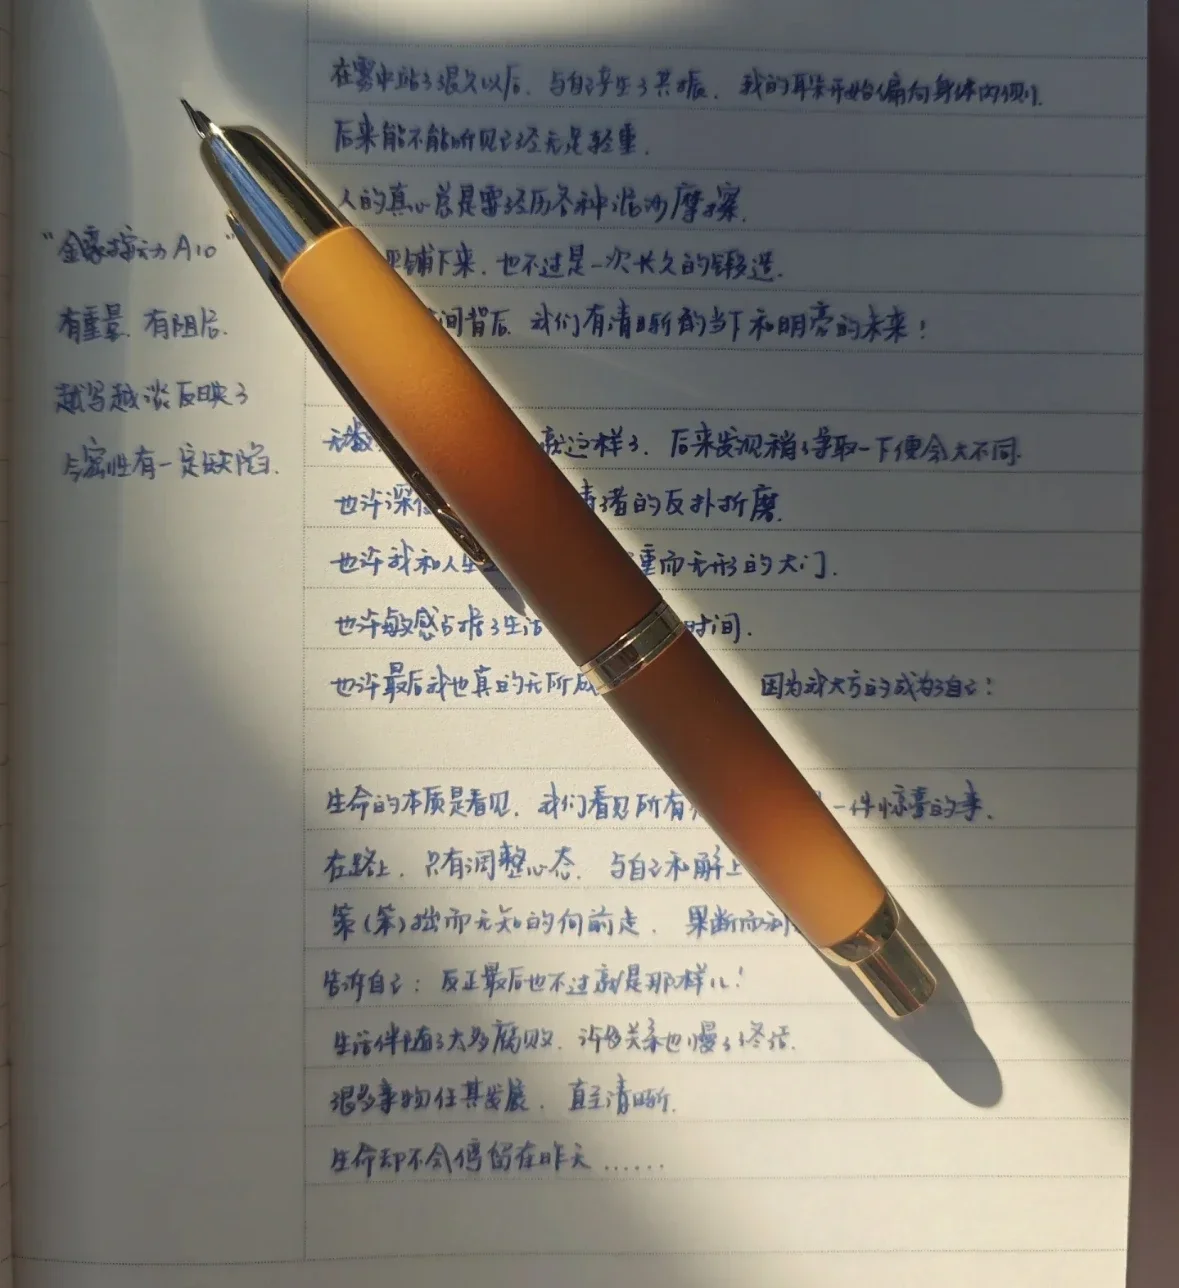 在雾中站了很久以后、与自己产生了共振、我的耳朵开始偏向身体内侧.
后来能不能听见已经无足轻重.
人的真心总是需经历各种泥沙摩擦.
铺下来、也不过是一次长久的锻造.
间背后、我们有清晰的当下和明亮的未来！
"金豪按动A10"
有重量、有阻尼.
越写越淡反映了
气密性有一定缺陷.
无数 就这样了、后来发现稍了争取一下便会大不同.
也许深 的反扑折磨.
也许我和人生 重而无形的大门.
也许敏感占据了生活 时间.
也许最后我也真的无所成 因为我大方的成为了自己：
生命的本质是看见、我们看见所有 一件惊喜的事.
在路上、只有调整心态、与自己和解上
策(笨)拙而无知的向前走、果断而利
告诉自己：反正最后也不过就是那样儿！
生活伴随了太多腐败、许多关系也慢了终结.
很多事物任其发展、直至清晰.
生命却不会停留在昨天……